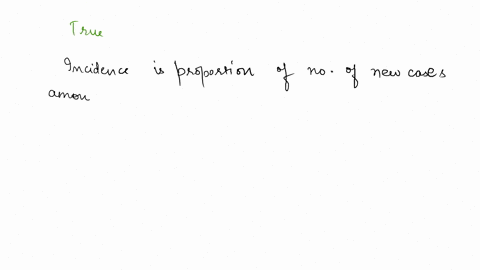 True
Incidence is proportion of no. of new cases
amon